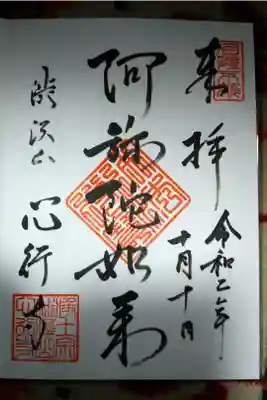 奉拝
令和二年
十月十日
阿弥陀如来
心行寺
浄土宗